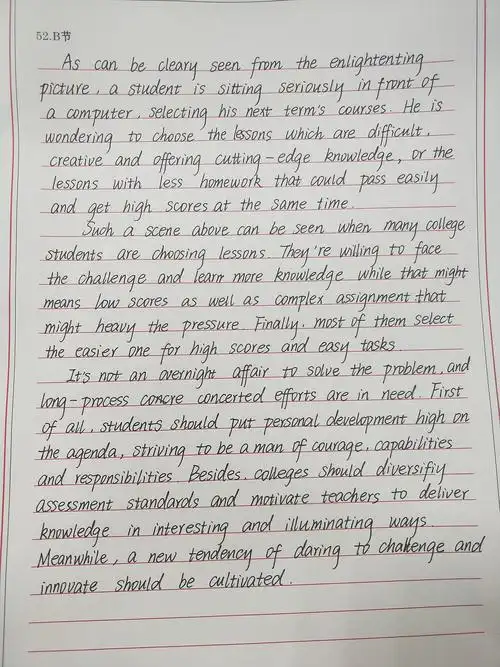 52.B节
As can be cleary seen from the enlightenting
picture, a student is sitting seriously in front of
a computer, selecting his next term's courses. He is
wondering to choose the lessons which are difficult,
creative and offering cutting-edge knowledge, or the
lessons with less homework that could pass easily
and get high scores at the same time.
Such a scene above can be seen when many college
students are choosing lessons. They're willing to face
the challenge and learn more knowledge while that might
means low scores as well as complex assignment that
might heavy the pressure. Finally, most of them select
the easier one for high scores and easy tasks.
It's not an overnight affair to solve the problem, and
long-process concre concerted efforts are in need. First
of all, students should put personal development high on
the agenda, striving to be a man of courage, capabilities
and responsibilities. Besides, colleges should diversifiy
assessment standards and motivate teachers to deliver
knowledge in interesting and illuminating ways.
Meanwhile, a new tendency of daring to challenge and
innovate should be cultivated.